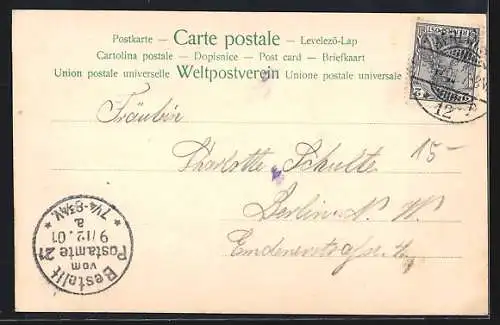 Postkarte — Carte postale — Levelező-Lap
Cartolina postale — Dopisnice — Post card — Briefkaart
Union postale universelle Weltpostverein Unione postale universale
12-
Fräulein
15-
Charlotte Schulte
Berlin N. W.
Emdenerstraße
Bestellt
vom
Postamte 21
9/12.01
a
* 7¼-8¾V. *